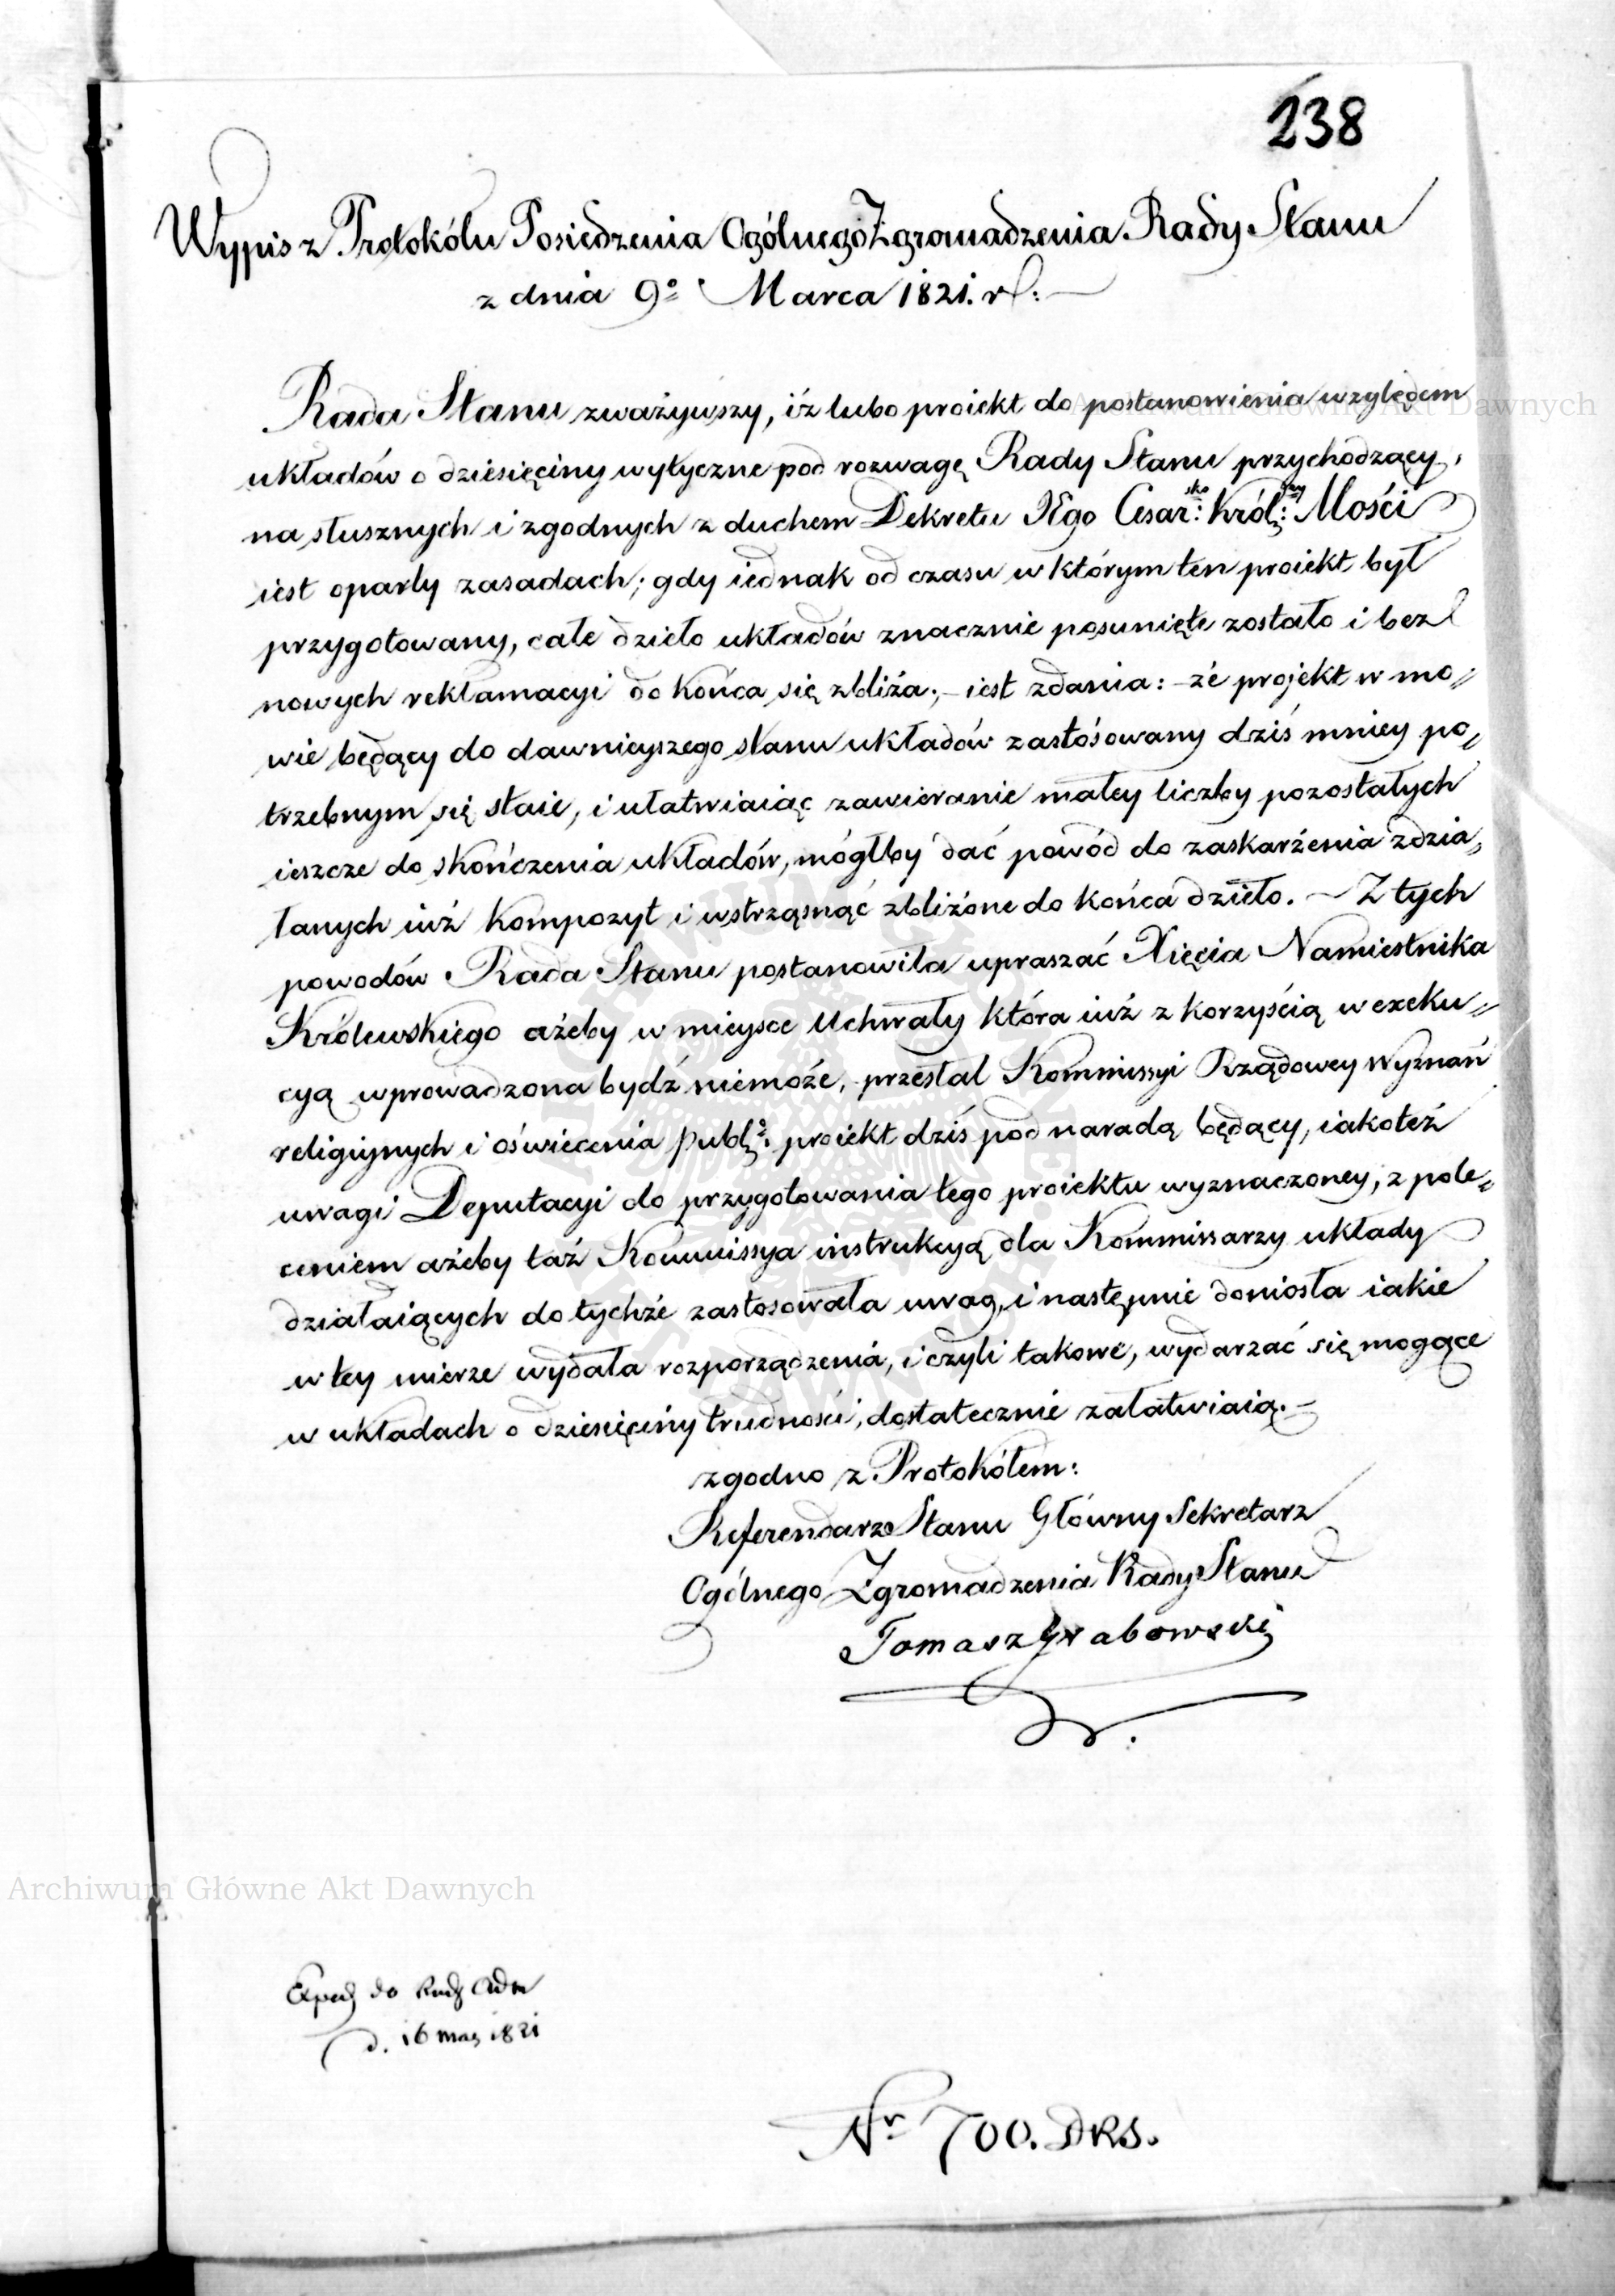 238
Wypis z Protokólu Posiedzenia Ogólnego Zgromadzenia Rady Stanu
z dnia 9º Marca 1821. r.
Rada Stanu zważywszy, iż lubo proiekt do postanowienia względem
układów o dziesięciny wytyczne pod rozwagę Rady Stanu przychodzący,
na słusznych i zgodnych z duchem Dekretu JEgo Cesar:sko Król:ey Mości
iest oparty zasadach; gdy iednak od czasu w którym ten proiekt był
przygotowany, całe dzieło układów znacznie posunięte zostało i bez
nowych reklamacyi do końca się zbliża; – iest zdania: – że projekt w mo„
wie będący do dawnieyszego stanu układów zastósowany dziś mniey po„
trzebnym się staie, i ułatwiaiąc zawieranie małey liczby pozostałych
ieszcze do skończenia układów, mógłby dać powód do zaskarżenia zdzia„
łanych iuż kompozyt i wstrząsnąć zbliżone do końca dzieło. – Z tych
powodów Rada Stanu postanowiła upraszać Xięcia Namiestnika
Królewskiego ażeby w mieysce Uchwały która iuż z korzyścią w exeku„
cyą wprowadzona bydź niemoże, przesłał Kommissyi Rządowey Wyznań
religiynych i oświecenia publ: proiekt dziś pod naradą będący, iakoteż
uwagi Deputacyi do przygotowania tego proiektu wyznaczoney, z pole„
ceniem ażeby taż Kommissya instrukcyą dla Kommissarzy układy
działaiących do tychże zastosowała uwag, i następnie doniosła iakie
w tey mierze wydała rozporządzenia, i czyli takowe, wydarzać się mogące
w układach o dziesięciny trudności, dostatecznie załatwiaią. –
zgodno z Protokółem:
Referendarz Stanu Główny Sekretarz
Ogólnego Zgromadzenia Rady Stanu
Tomasz Grabowski
do
d. 16 1821
Nr 700. DRS.
Archiwum Główne Akt Dawnych
Archiwum Główne Akt Dawnych